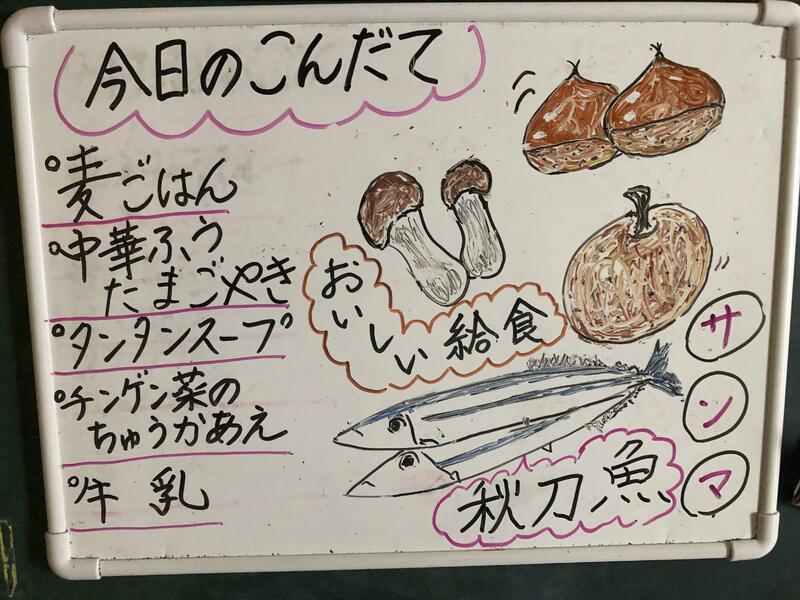 今日のこんだて
麦ごはん
中華ふう
たまごやき
タンタンスープ
チンゲン菜の
ちゅうかあえ
牛乳
おいしい給食
秋刀魚
サンマ